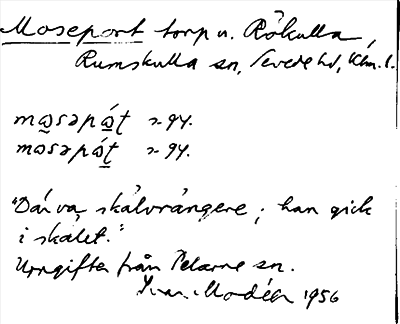 Moseport torp u. Rökulla,
Rumskulla sn, Sevede hd, Klm. l.
mωsəpωt r. 94.
mωsəpωt r. 94.
"Där va skålvrängere; han gick
i skålet."
Uppgifter från Pelarne sn.
Ivar Modéer 1956